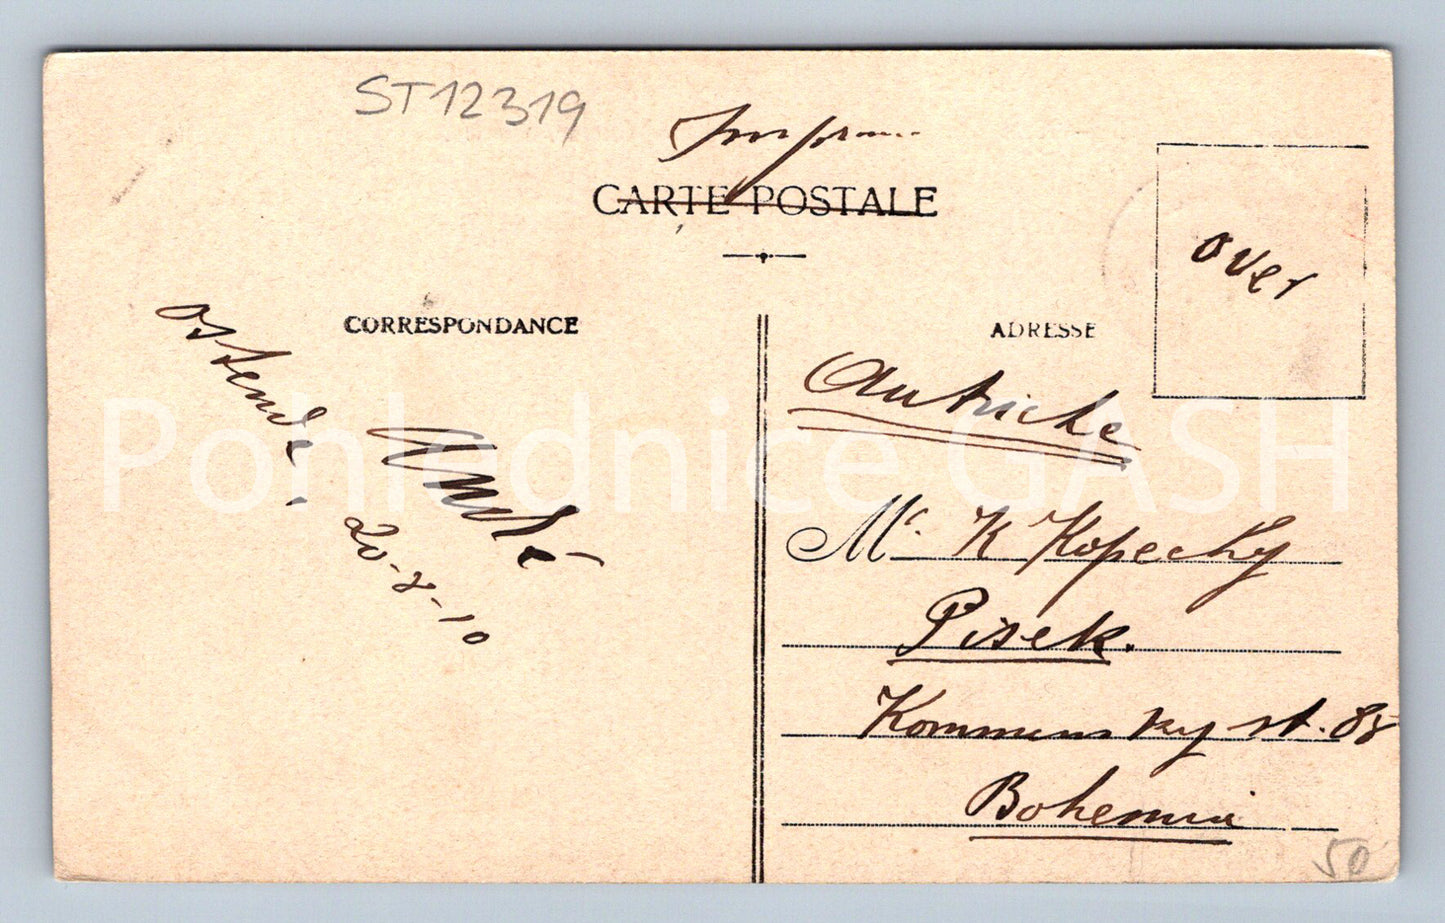 ST12319
CARTE POSTALE
over
CORRESPONDANCE
ADRESSE
Ostende.
20-8-10
Autriche
Mr. K Kopecky
Pisek.
Kommensky st. 85
Bohemia
50
Pohlednice GASH